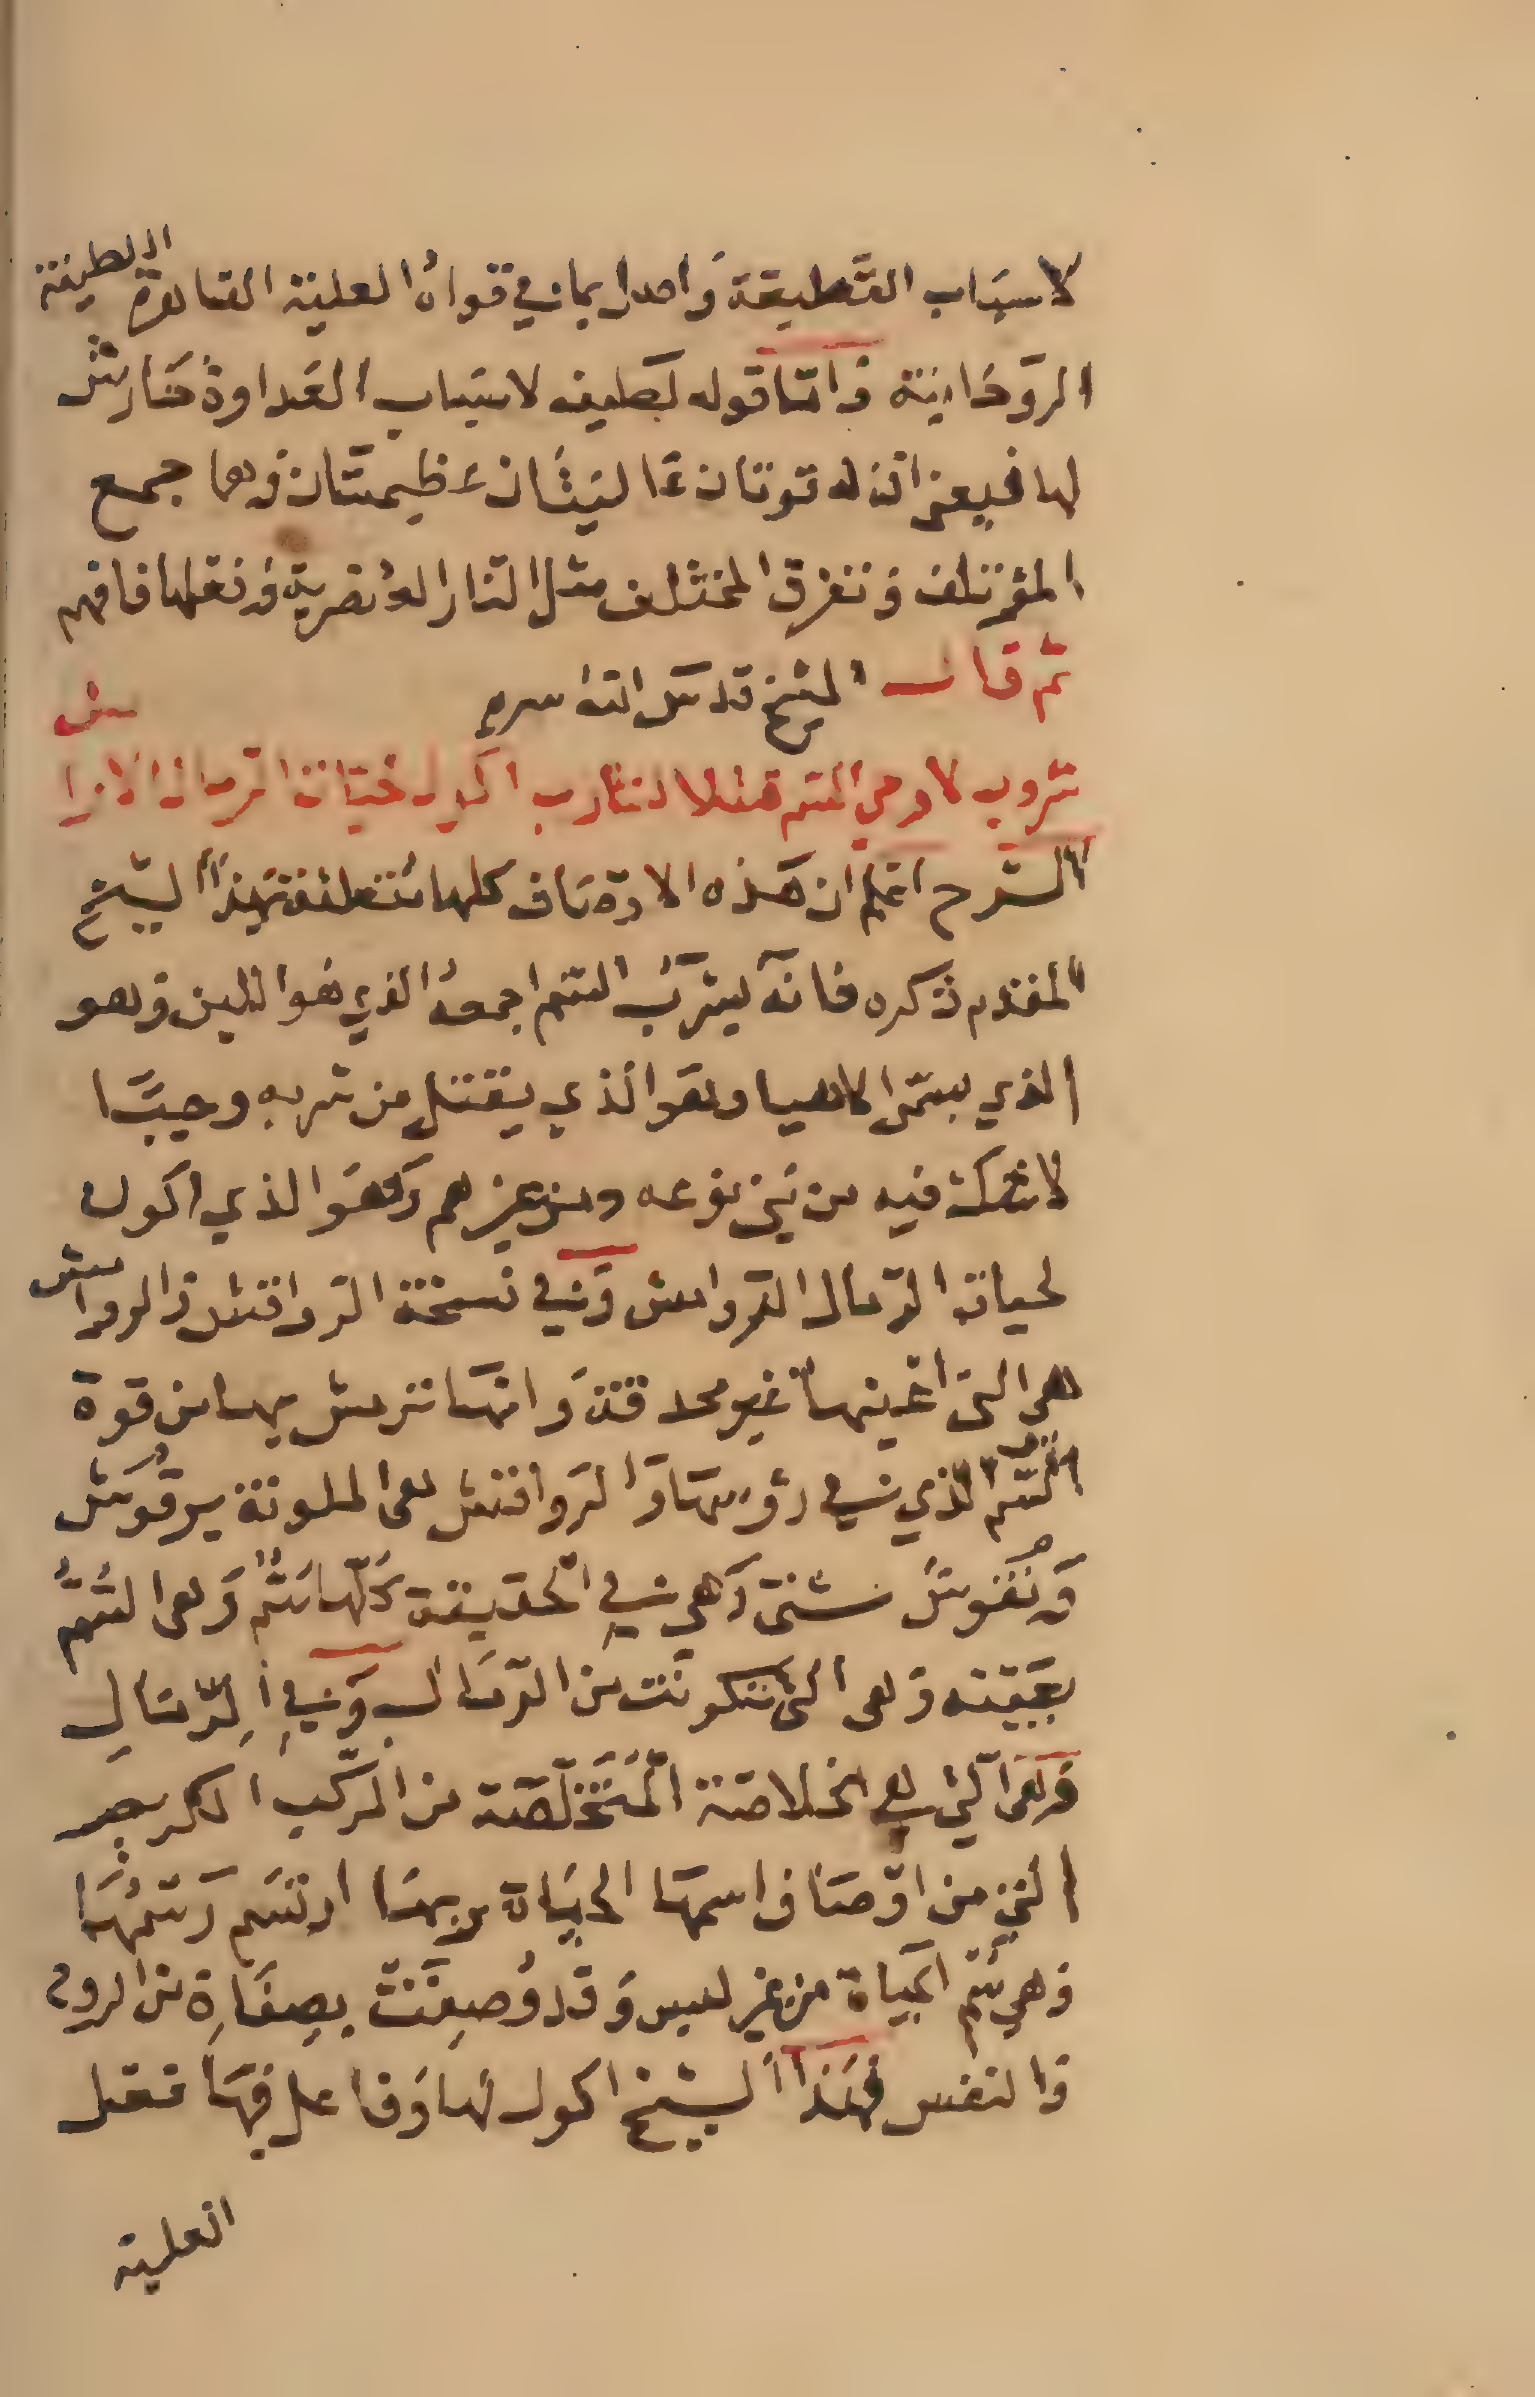 لاسباب القطيعة واصل بما في قواه العلية القاهرة اللطيفة
الروحانية واما قوله لطيف لاسباب العداوة حارش
لها فيعنى ان له قوتان عاليتان عظيمتان وهما جمع
المؤتلف وتفرق المختلف مثل النار العنصرية وفعلها فافهم
ثم قال الشيخ قدس الله سره
شروب لاوحي السم هذا لشارب اكول لحيات الرمال
الشرح اعلم ان هذه الاوصاف كلها متعلقة بهذا الشيخ
المقدم ذكره فانه يشرب السم اجمعه الذي هو اللبن وهو
الذي يسمى الاهيا وهو الذي يقتل من شربه وحيًا
لا شك فيه من بني نوعه ومن غيرهم وهو الذي اكول
لحيات الرمال الروامش وفي نسخة الرواقش والروامش
هي التي اعينها غير محدقة وانها ترمش بها من قوة
السم الذي في رؤسها والرواقش هي الملونة برقوش
ونقوش شتى وهي في الحقيقة كلها سم وهي السم
بعينه وهي التي تكونت من الرمال وفي الرمال
وهي التي هي الخلاصة المتخلصة من المركب الكريم
التي من اوصاف اسمها الحياة وبها ارتسم رسمها
وهي سم الحياة من غير لبس وقد وصفت بصفاة من الروح
والنفس فهذا الشيخ اكول لها وفاعل فيها فعل
العلية